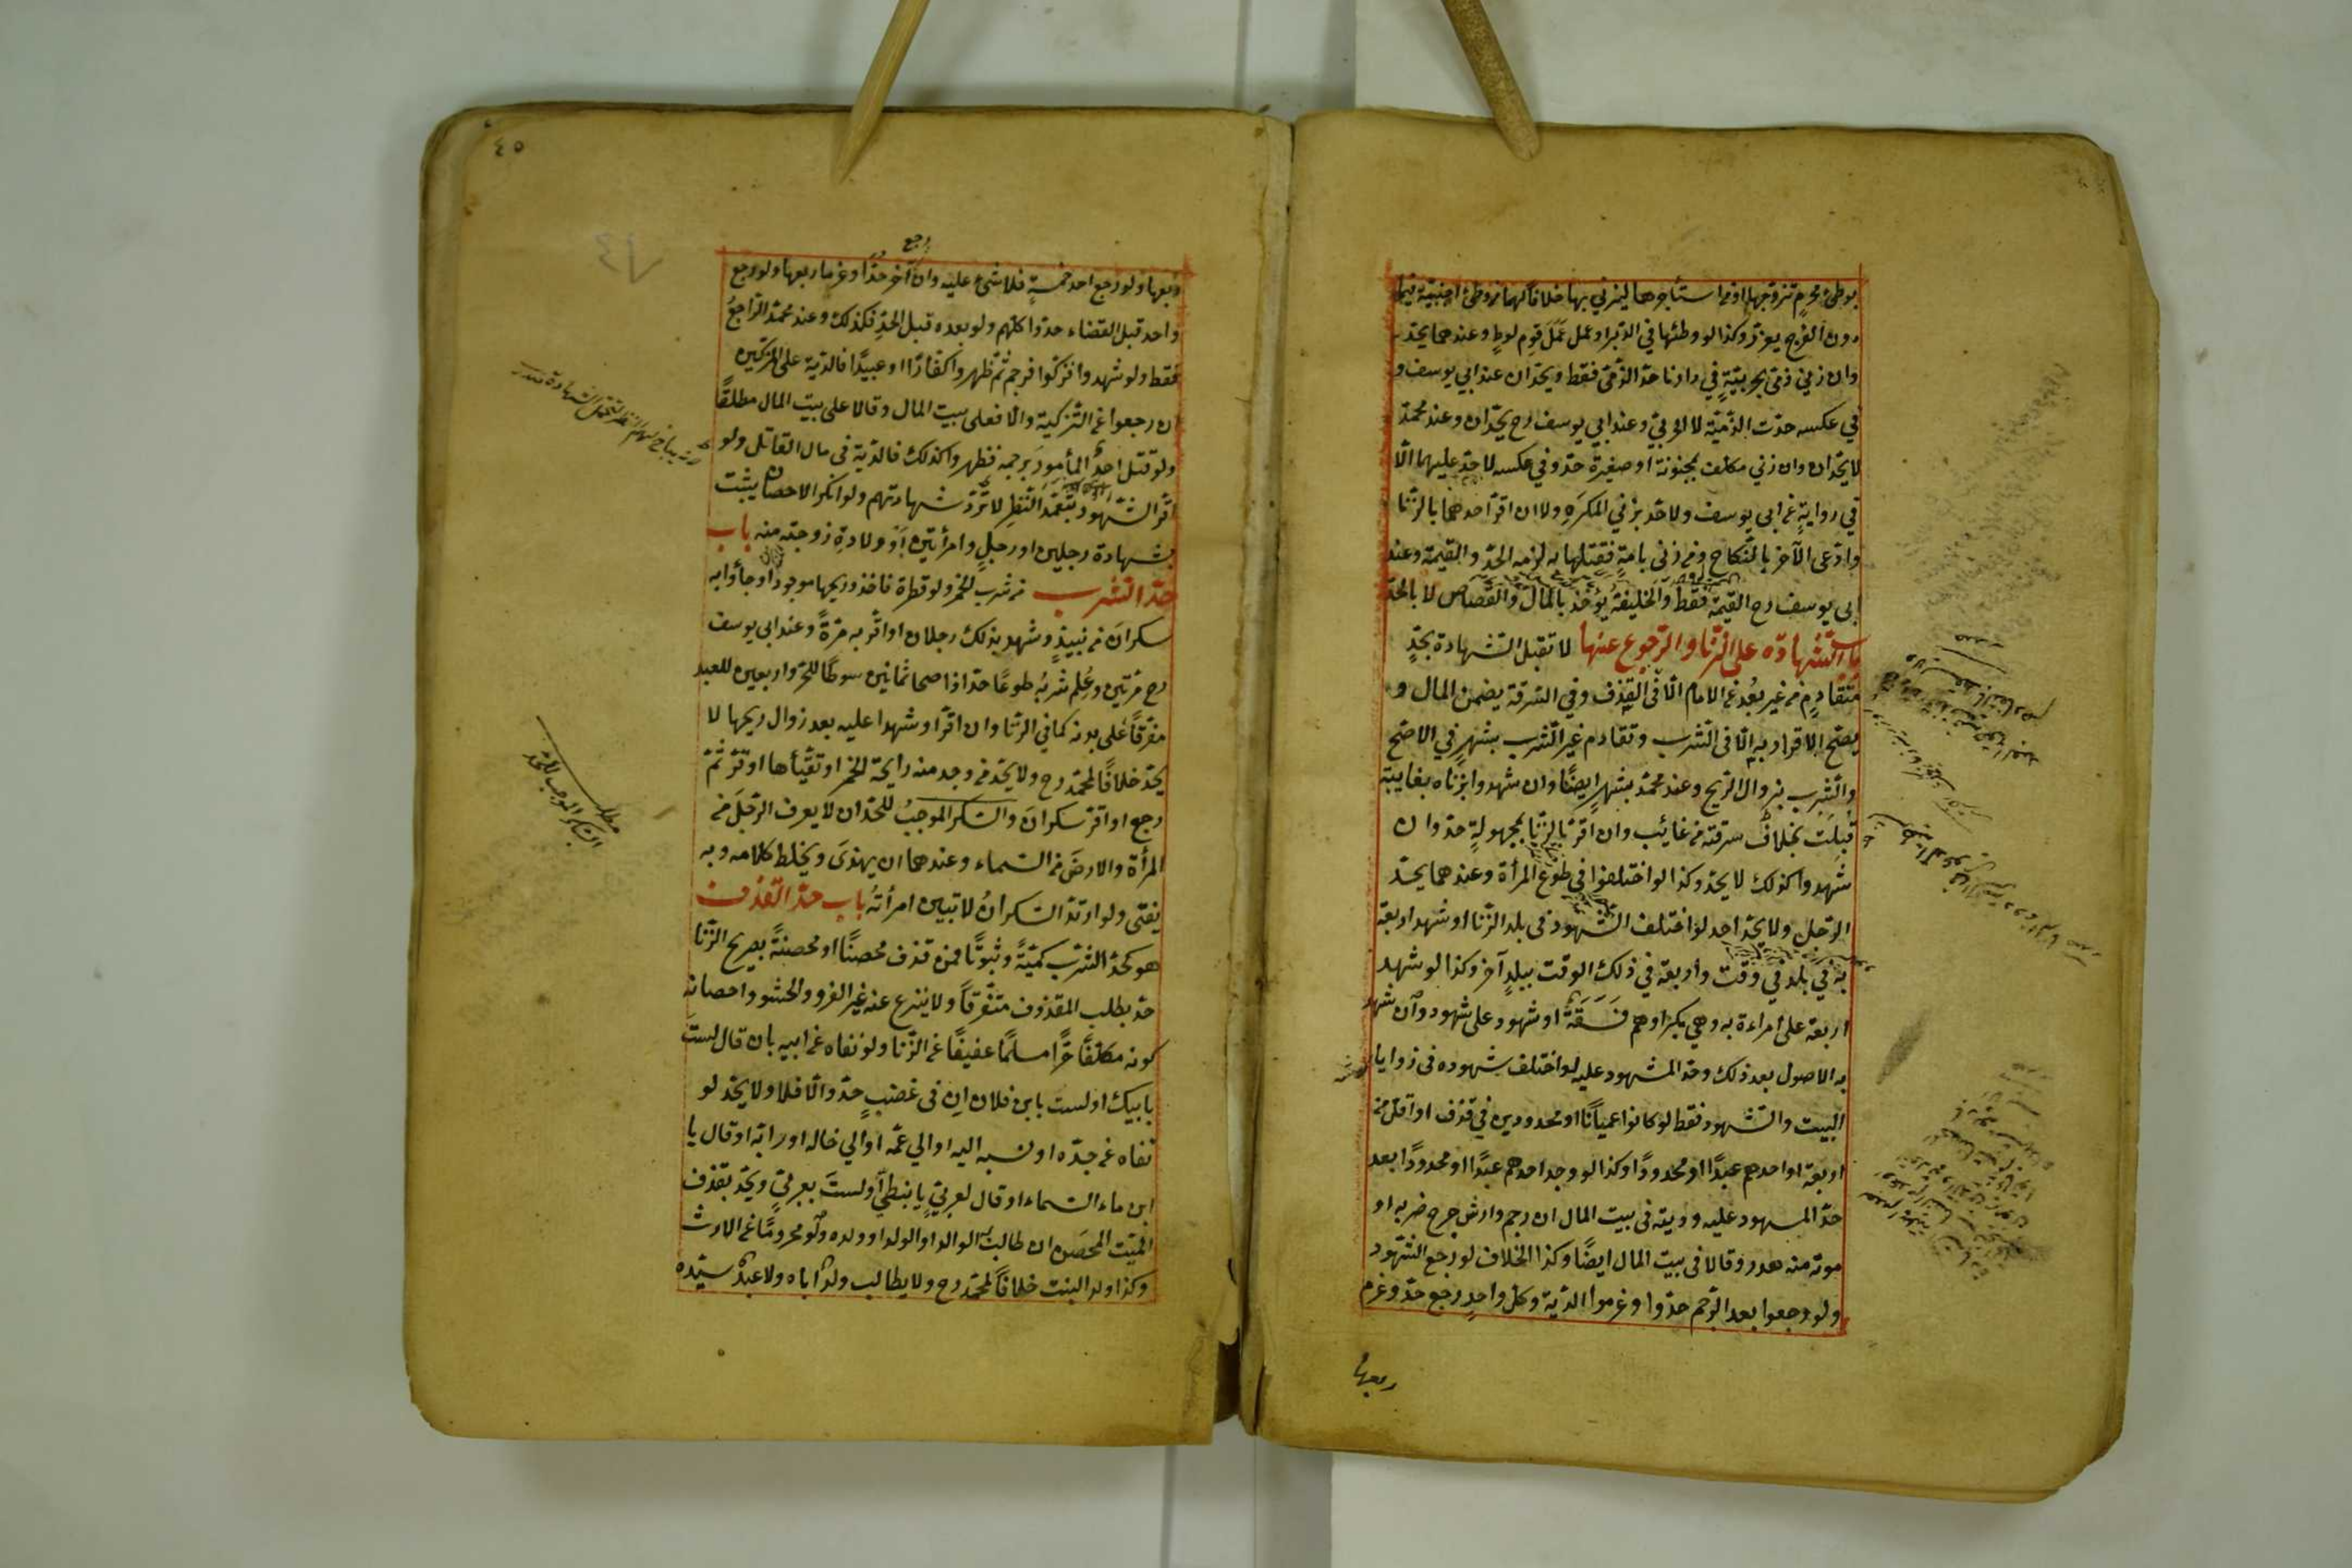 بوطئ محرم تزوجها او من استأجرها ليزني بها خلافا لهما ومن وطئ اجنبية فيما
دون الفرج يعزر وكذا لو وطئها في الدبر او عمل عمل قوم لوط وعندهما يحد
وان زني ذمي بحربية في دارنا حد الذمي فقط ويحدان عند ابي يوسف و
في عكسه حدت الذمية لا الحربي وعند ابي يوسف رح يحدان وعند محمد
لا يحدان وان زني مكلف بمجنونة او صغيرة حد وفي عكسه لا حد عليهما الا
في رواية عن ابي يوسف ولا حد بزني المكره ولا ان اقر احدهما بالزنا
وادعى الآخر بالنكاح ومن زنى بامة فقتلها به لزمه الحد والقيمة وعند
ابي يوسف رح القيمة فقط والخليفة يؤخذ بالمال والقصاص لا بالحد
باب الشهادة على الزنا والرجوع عنها لا تقبل الشهادة بحد
متقادم من غير بعد عن الامام الا في القذف وفي السرقة يضمن المال و
يصح الاقرار به الا في الشرب وتقادم غير الشرب بشهر في الاصح
والشرب بزوال الريح وعند محمد بشهر ايضا وان شهدوا بزناه بغايبة
قبلت بخلاف سرقة من غائب وان اقر بالزنا بمجهولة حد وان
شهدوا كذلك لا يحد وكذا لو اختلفوا في طوع المرأة وعندهما يحد
الرجل ولا يحد احد لو اختلف الشهود في بلد الزنا او شهد اربعة
به في بلد في وقت واربعة في ذلك الوقت ببلد آخر وكذا لو شهد
اربعة على امراءة به وهي بكر او هم فسقة او شهود على شهود وان شهد
به الاصول بعد ذلك وحد المشهود عليه لو اختلف شهوده في زوايا
البيت والشهود فقط لو كانوا عميانا او محدودين في قذف او اقل من
اربعة او احدهم عبدا او محدودا وكذا لو وجد احدهم عبدا او محدودا بعد
حد المسهود عليه وديته في بيت المال ان رجم وارش جرح ضربه او
موته منه هدر وقالا في بيت المال ايضا وكذا الخلاف لو رجع الشهود
ولو رجعوا بعد الرجم حدوا وغرموا الدية وكل واحد رجع حد وغرم
ربعها
٤٥
رجع
ربعها ولو رجع احد خمسة فلا شئ عليه وان آخر حدا وغرما ربعها ولو رجع
واحد قبل القضاء حدوا كلهم ولو بعده قبل الحد فكذلك وعند محمد الراجع
فقط ولو شهدوا فزكوا فرجم ثم ظهروا كفارا او عبيدا فالدية على المزكين
ان رجعوا عن التزكية والا فعلى بيت المال وقالا على بيت المال مطلقا
ولو قتل احد المأمور برجمه فظهروا كذلك فالدية في مال القاتل ولو
اقر الشهود بتعمد النظر لا ترد شهادتهم ولو انكر الاحصان يثبت
بشهادة رجلين او رجل وامرأتين او ولادة زوجته منه باب
حد الشرب من شرب الخمر ولو قطرة فاخذ وريحها موجود او جأوا به
سكران من نبيذ وشهد بذلك رجلان او اقر به مرة وعند ابي يوسف
رح مرتين وعلم شربه طوعا حد اذا صحا ثمانين سوطا للحر واربعين للعبد
مفرقا على بدنه كما في الزنا وان اقر او شهدا عليه بعد زوال ريحها لا
يحد خلافا لمحمد رح ولا يحد من وجد منه رايحة الخمر او تقيأها او اقر ثم
رجع او اقر سكران والسكر الموجب للحد ان لا يعرف الرجل من
المرأة والارض من السماء وعندهما ان يهذى ويخلط كلامه وبه
يفتى ولو ارتد السكران لا تبين امرأته باب حد القذف
هو كحد الشرب كمية وثبوتا فمن قذف محصنا او محصنة بصريح الزنا
حد بطلب المقذوف متفرقا ولا ينزع عنه غير الفرو والحشو واحصانه
كونه مكلفا حرا مسلما عفيفا عن الزنا ولو نفاه عن ابيه بان قال لست
بابيك او لست بابن فلان ان في غضب حد والا فلا ولا يحد لو
نفاه عن جده او نسبه اليه او الي عمه او الي خاله او رابه او قال يا
ابن ماء السماء او قال لعربي يا نبطي او لست بعربي ويحد بقذف
الميت المحصن ان طالب الوالد او الولد او ولده ولو محروما عن الارث
وكذا ولد البنت خلافا لمحمد رح ولا يطالب ولد اباه ولا عبد سيده
مطلب
السكر الموجب للحد